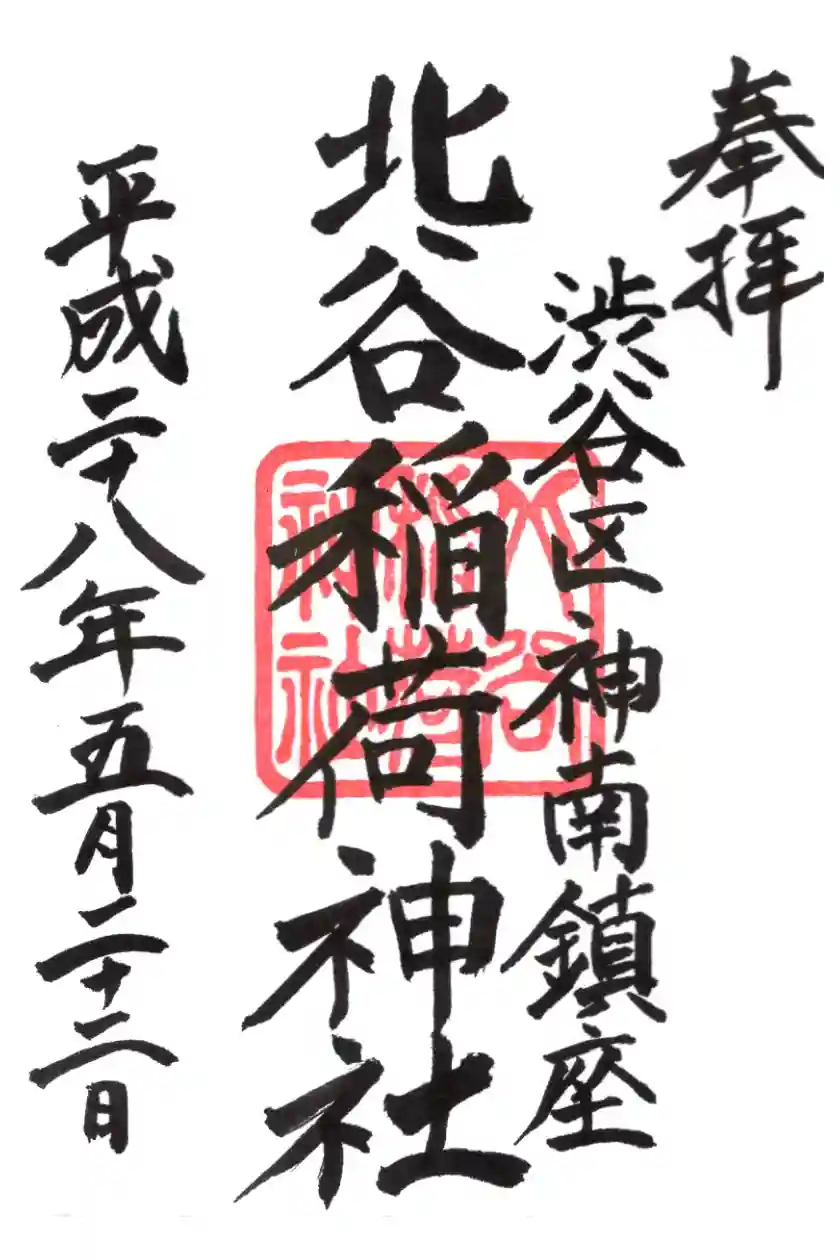 奉拝
渋谷区神南鎮座
北谷稲荷神社
平成二十八年五月二十二日
北谷
稲荷
神社